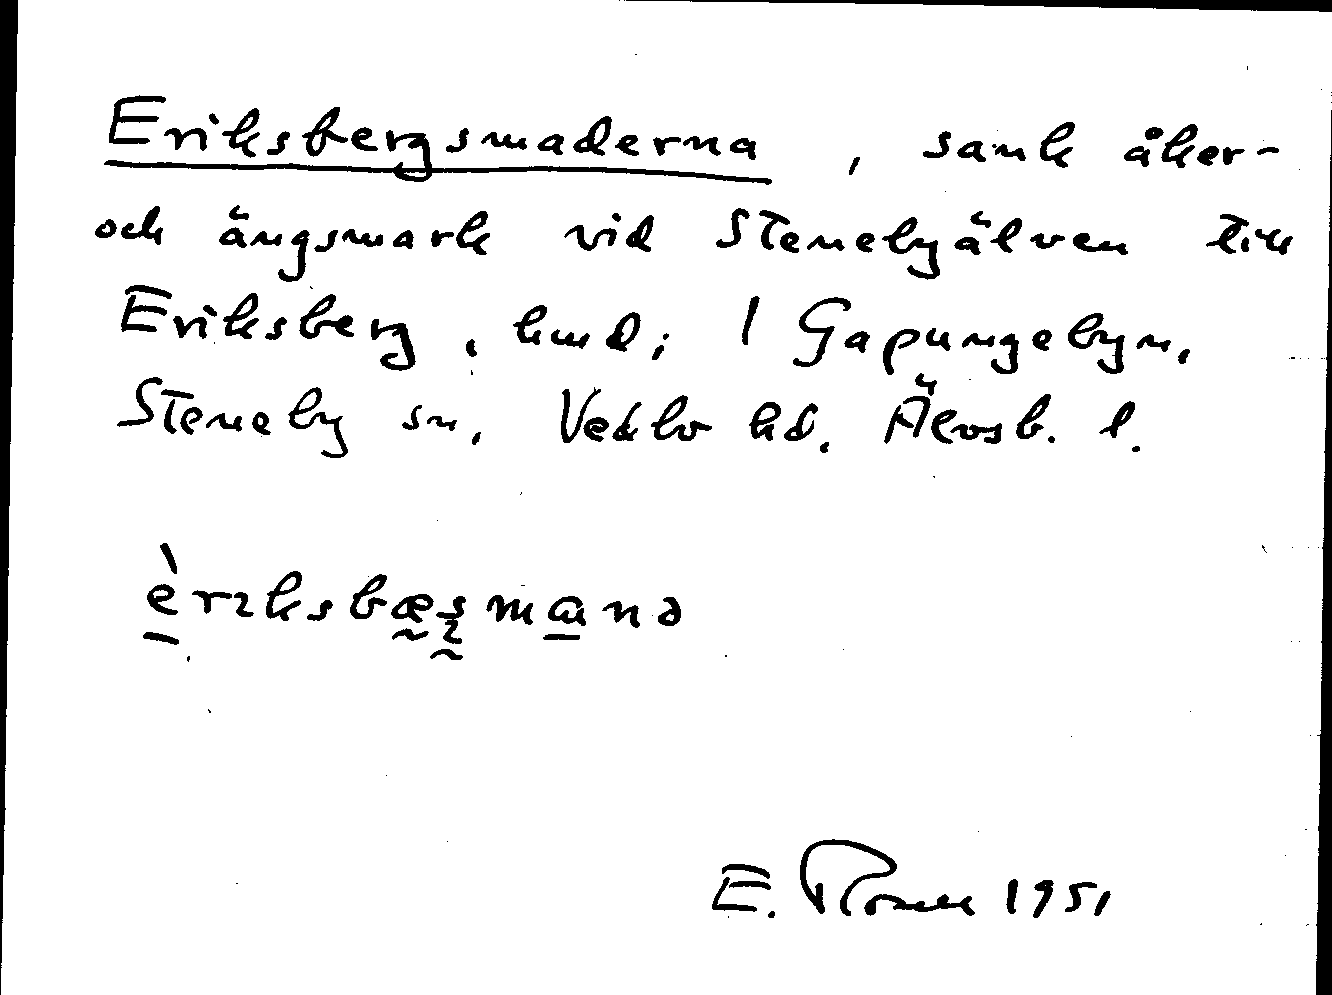 Eriksbergsmaderna, sank åker-
och ängsmark vid Stenebyälven till
Eriksberg, hmd; 1 Gapungebyn,
Steneby sn, Vedbo hd. Älvsb. l.
E. 1951